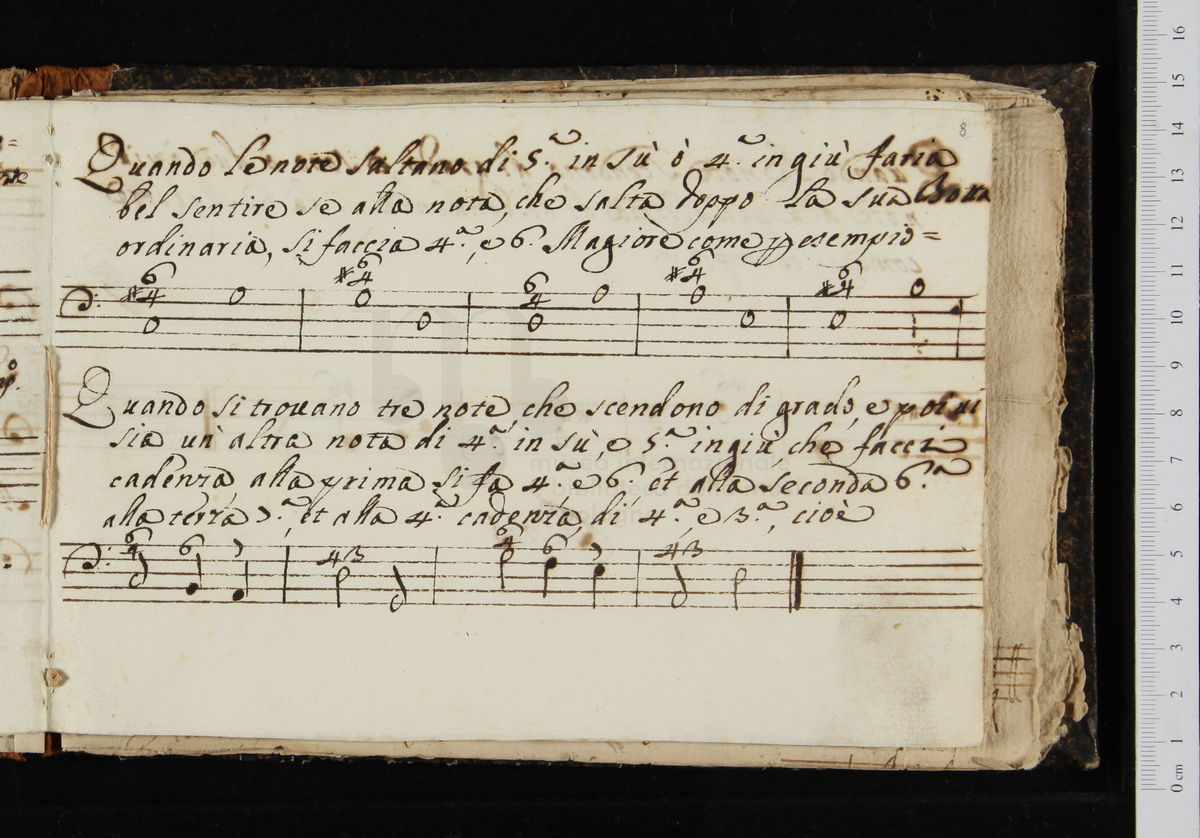 8
Quando le note saltano di 5.ª in sù ò 4.ª in giù faria
bel sentire se alla nota, che salta doppo la sua Bona
ordinaria, si faccia 4.ª, e 6. Magiore come p esempio=
6 #4 #6 4 6 4 #6 4 6 #4
Quando si trouano tre note che scendono di grado, e poi ui
sia un' altra nota di 4.ª in sù, e 5.ª in giù che facci
cadenza alla prima si fa 4.ª e 6. et alla seconda 6.ª
alla terza 3.ª, et alla 4.ª cadenza, di 4.ª, e 3.ª, cioè
6 4 6 4 3 6 4 6 4 3
museo internazionale
16
15
14
13
12
11
10
9
8
7
6
5
4
3
2
1
0 cm